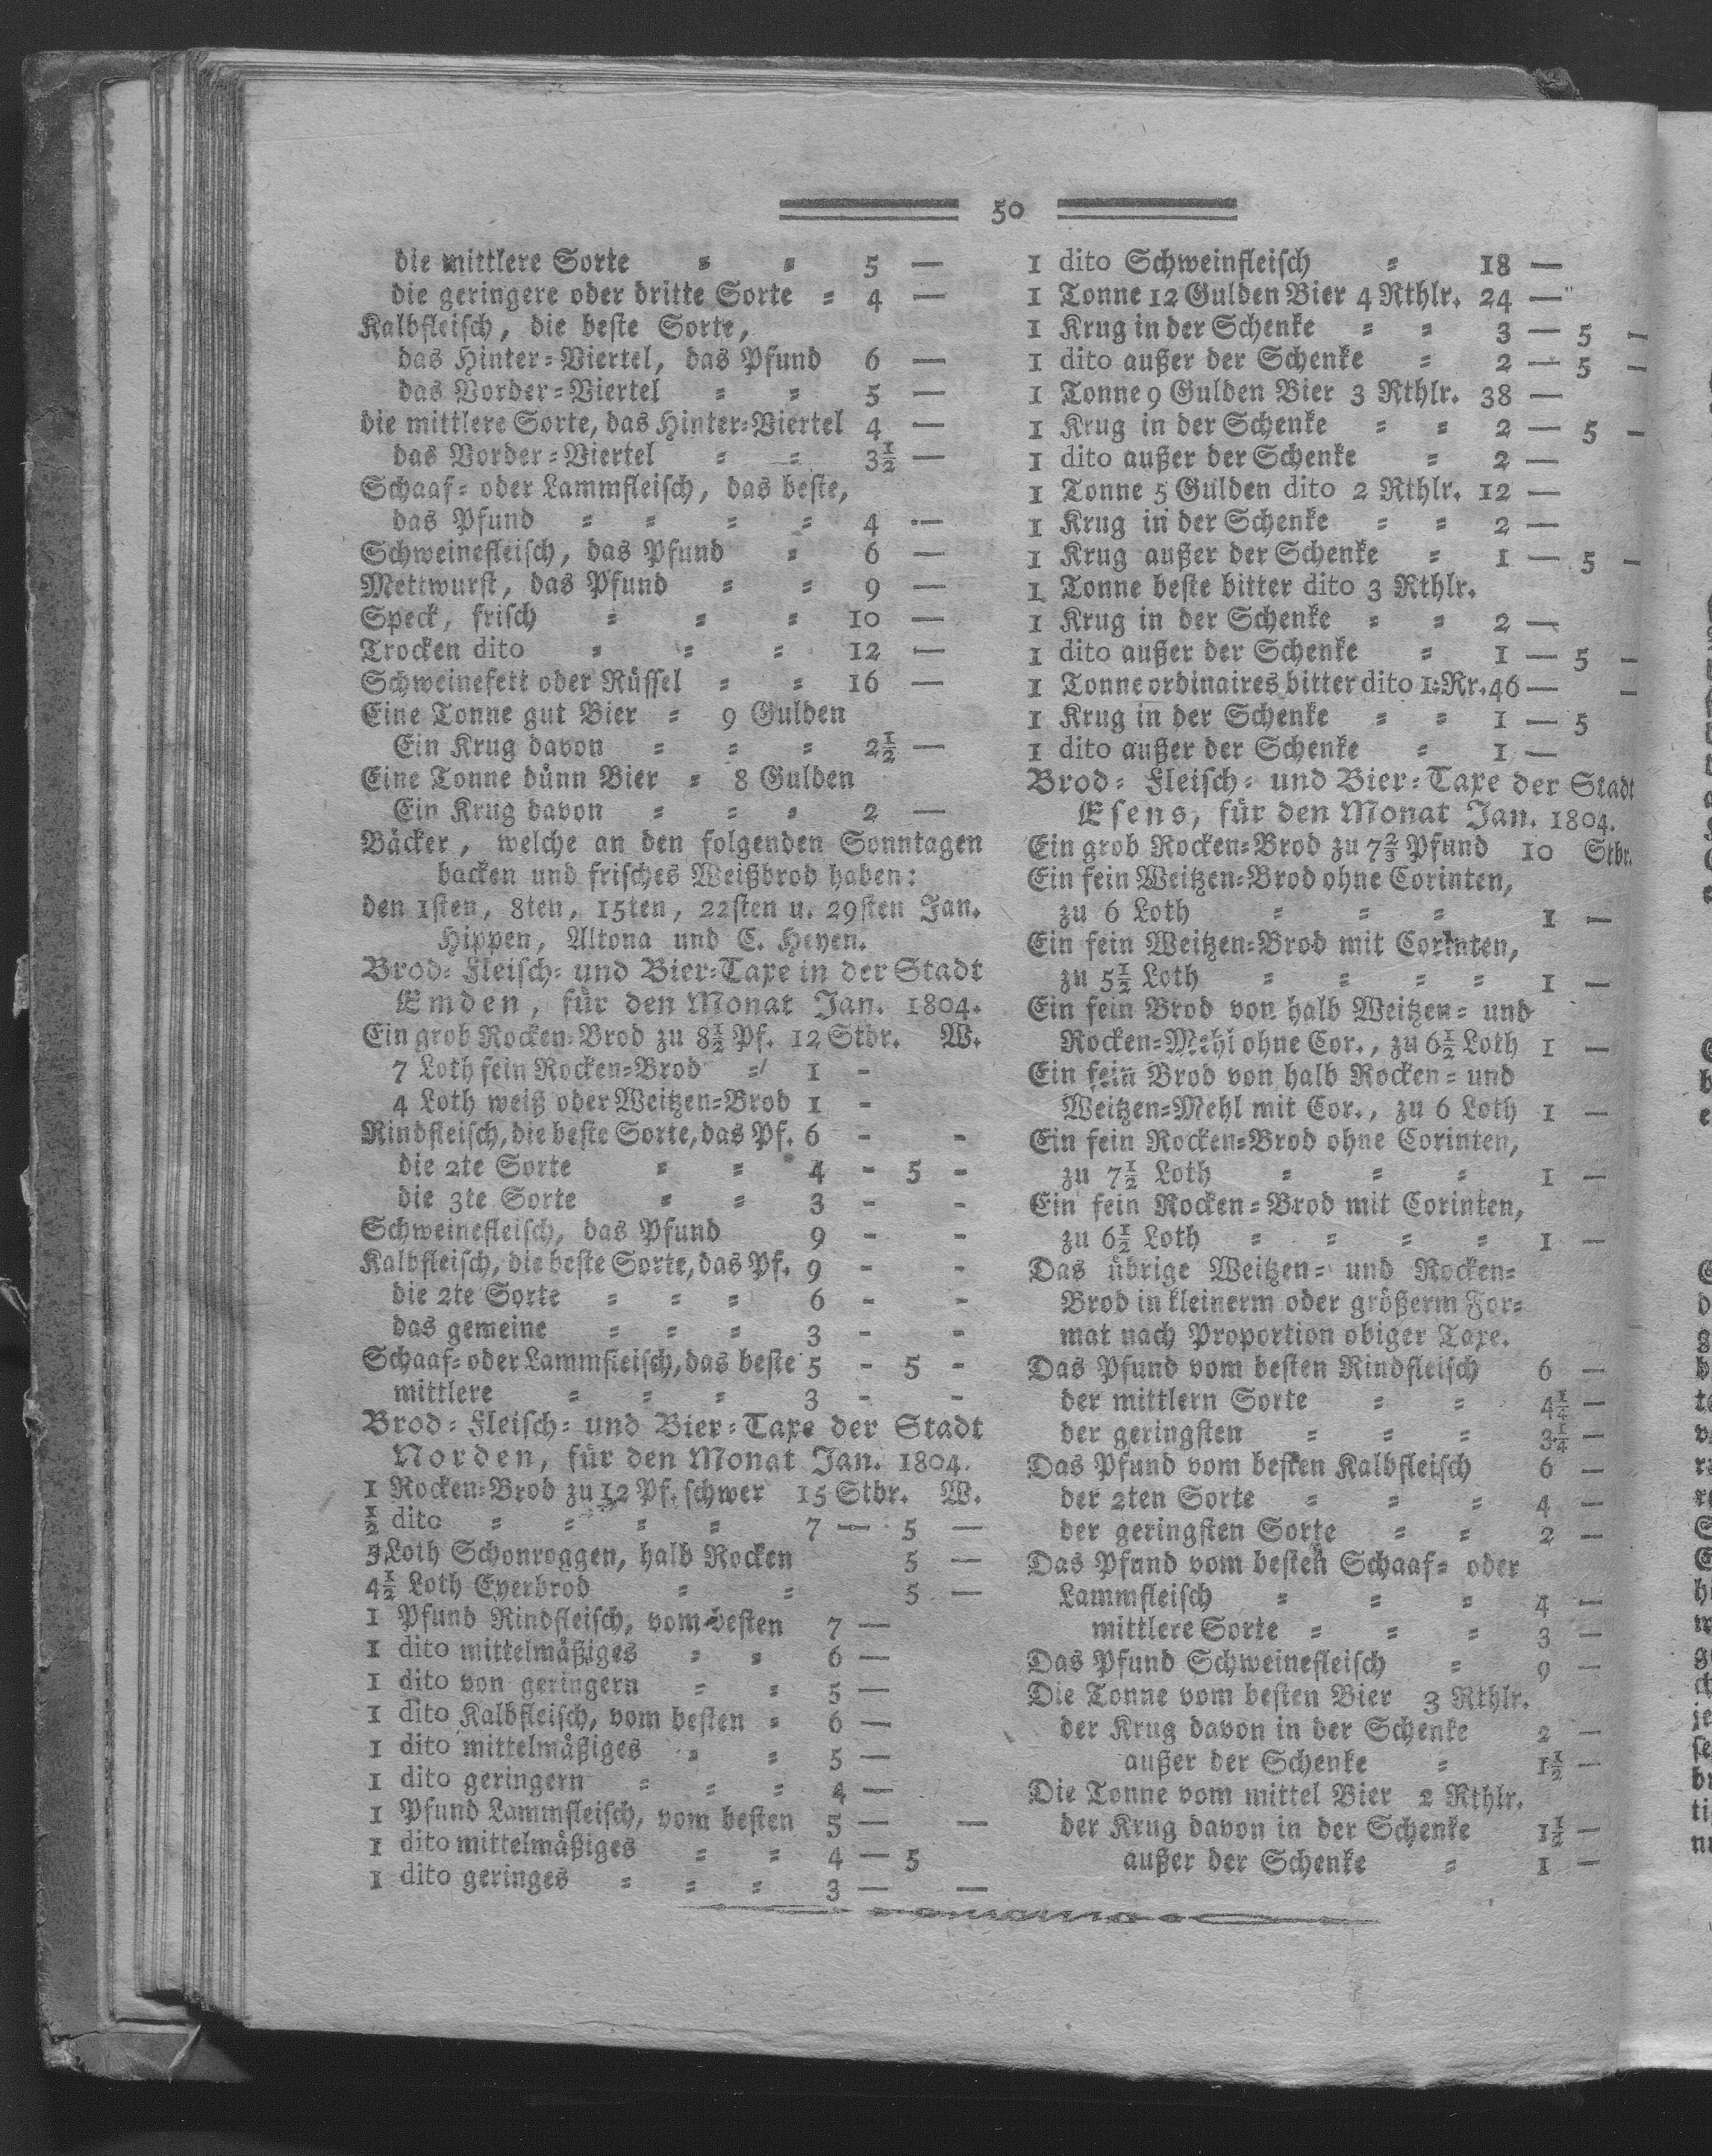 50
die mittlere Sorte = = 5 —
die geringere oder dritte Sorte = 4 —
Kalbfleisch, die beste Sorte,
das Hinter=Viertel, das Pfund 6 —
das Vorder=Viertel = = 5 —
die mittlere Sorte, das Hinter=Viertel 4 —
das Vorder=Viertel = = 3½ —
Schaaf= oder Lammfleisch, das beste,
das Pfund = = = = 4 —
Schweinefleisch, das Pfund = 6 —
Mettwurst, das Pfund = = 9 —
Speck, frisch = = = 10 —
Trocken dito = = = 12 —
Schweinefett oder Rüssel = = 16 —
Eine Tonne gut Bier = 9 Gulden
Ein Krug davon = = = 2½ —
Eine Tonne dünn Bier = 8 Gulden
Ein Krug davon = = = 2 —
Bäcker, welche an den folgenden Sonntagen
backen und frisches Weißbrod haben:
den 1sten, 8ten, 15ten, 22sten u. 29sten Jan.
Hippen, Altona und C. Heyen.
Brod= Fleisch= und Bier=Taxe in der Stadt
Emden, für den Monat Jan. 1804.
Ein grob Rocken=Brod zu 8½ Pf. 12 Stbr. W.
7 Loth fein Rocken=Brod = 1 -
4 Loth weiß oder Weitzen=Brod 1 -
Rindfleisch, die beste Sorte, das Pf. 6 - -
die 2te Sorte = = 4 - 5 -
die 3te Sorte = = 3 - -
Schweinefleisch, das Pfund 9 - -
Kalbfleisch, die beste Sorte, das Pf. 9 - -
die 2te Sorte = = = 6 - -
das gemeine = = = 3 - -
Schaaf= oder Lammfleisch, das beste 5 - 5 -
mittlere = = = 3 - -
Brod= Fleisch= und Bier=Taxe der Stadt
Norden, für den Monat Jan. 1804.
1 Rocken=Brod zu 12 Pf. schwer 15 Stbr. W.
½ dito = = = = 7 — 5 —
Loth Schonroggen, halb Rocken 5 —
4½ Loth Eyerbrod = = 5 —
1 Pfund Rindfleisch, vom besten 7 —
1 dito mittelmäßiges = = 6 —
1 dito von geringern = = 5 —
1 dito Kalbfleisch, vom besten = 6 —
1 dito mittelmäßiges = = 5 —
1 dito geringern = = = 4 —
1 Pfund Lammfleisch, vom besten 5 — —
1 dito mittelmäßiges = = 4 — 5
1 dito geringes = = = 3 — —
1 dito Schweinfleisch = 18 —
1 Tonne 12 Gulden Bier 4 Rthlr. 24 —
1 Krug in der Schenke = = 3 — 5 —
1 dito außer der Schenke = 2 — 5 —
1 Tonne 9 Gulden Bier 3 Rthlr. 38 —
1 Krug in der Schenke = = 2 — 5 —
1 dito außer der Schenke = 2 —
1 Tonne 5 Gulden dito 2 Rthlr. 12 —
1 Krug in der Schenke = = 2 —
1 Krug außer der Schenke = 1 — 5 —
1 Tonne beste bitter dito 3 Rthlr.
1 Krug in der Schenke = = 2 —
1 dito außer der Schenke = 1 — 5 —
1 Tonne ordinaires bitter dito 1 Rr. 46 — —
1 Krug in der Schenke = = 1 — 5
1 dito außer der Schenke = 1 —
Brod= Fleisch= und Bier=Taxe der Stadt
Esens, für den Monat Jan. 1804.
Ein grob Rocken=Brod zu 7⅔ Pfund 10 Stbr.
Ein fein Weitzen=Brod ohne Corinten,
zu 6 Loth = = = 1 —
Ein fein Weitzen=Brod mit Corinten,
zu 5½ Loth = = = = 1 —
Ein fein Brod von halb Weitzen= und
Rocken=Mehl ohne Cor., zu 6½ Loth 1 —
Ein fein Brod von halb Rocken= und
Weitzen=Mehl mit Cor., zu 6 Loth 1 —
Ein fein Rocken=Brod ohne Corinten,
zu 7½ Loth = = = 1 —
Ein fein Rocken=Brod mit Corinten,
zu 6½ Loth = = = = 1 —
Das übrige Weitzen= und Rocken=
Brod in kleinerm oder größerm For=
mat nach Proportion obiger Taxe.
Das Pfund vom besten Rindfleisch 6 —
der mittlern Sorte = = 4¼ —
der geringsten = = = 3¼ —
Das Pfund vom besten Kalbfleisch 6 —
der 2ten Sorte = = = 4 —
der geringsten Sorte = = 2 —
Das Pfund vom besten Schaaf= oder
Lammfleisch = = = 4 —
mittlere Sorte = = = 3 —
Das Pfund Schweinefleisch = 9 —
Die Tonne vom besten Bier 3 Rthlr.
der Krug davon in der Schenke 2 —
außer der Schenke = 1½ —
Die Tonne vom mittel Bier 2 Rthlr.
der Krug davon in der Schenke 1½ —
außer der Schenke = 1 —